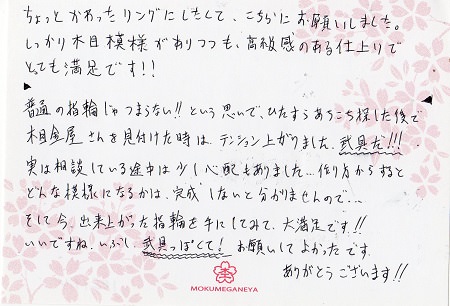 ちょっとかわったリングにしたくて、こちらにお願いしました。
しっかり木目模様がありつつも、高級感のある仕上りで
とっても満足です!!
普通の指輪じゃつまらない!!という思いで、ひたすらあちこち探した後で
木目金屋さんを見付けた時は、テンション上がりました。武具だ!!!
実は相談している途中は少し心配もありました…作り方からすると
どんな模様になるかは、完成しないと分かりませんので…
そして今、出来上がった指輪を手にしてみて、大満足です!!
いいですね、いぶし、武具っぽくて!お願いしてよかったです。
ありがとうございます!!
MOKUMEGANEYA